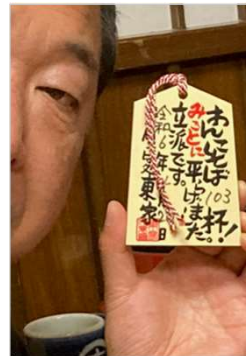 わんこそば
103杯!
みごとに平げました。
立派です。
令和6年
日
東家